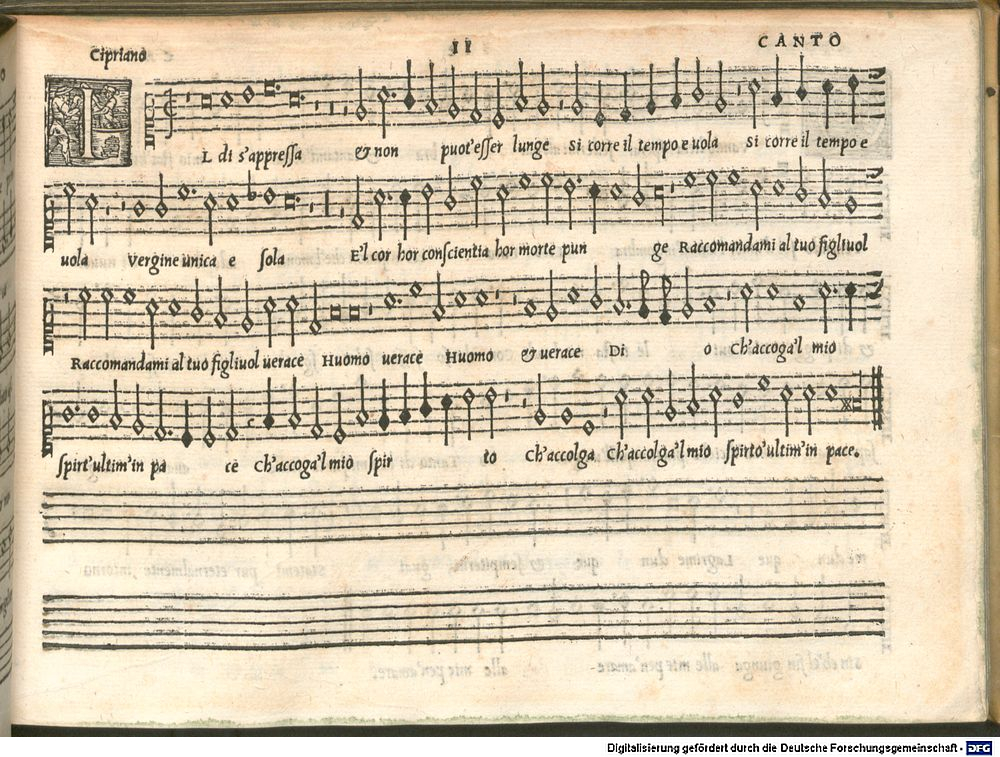 Cipriano
11
CANTO
IL di s'appressa & non puot'esser lunge si corre il tempo e uola si corre il tempo e
uola Vergine unica e sola E'l cor hor conscientia hor morte pun ge Raccomandami al tuo figliuol
Raccomandami al tuo figliuol uerace Huomo uerace Huomo & uerace Di o Ch'accoga'l mio
spirt'ultim'in pa ce Ch'accoga'l mio spir to Ch'accolga Ch'accolga'l mio spirto'ultim'in pace.
Digitalisierung gefördert durch die Deutsche Forschungsgemeinschaft - DFG